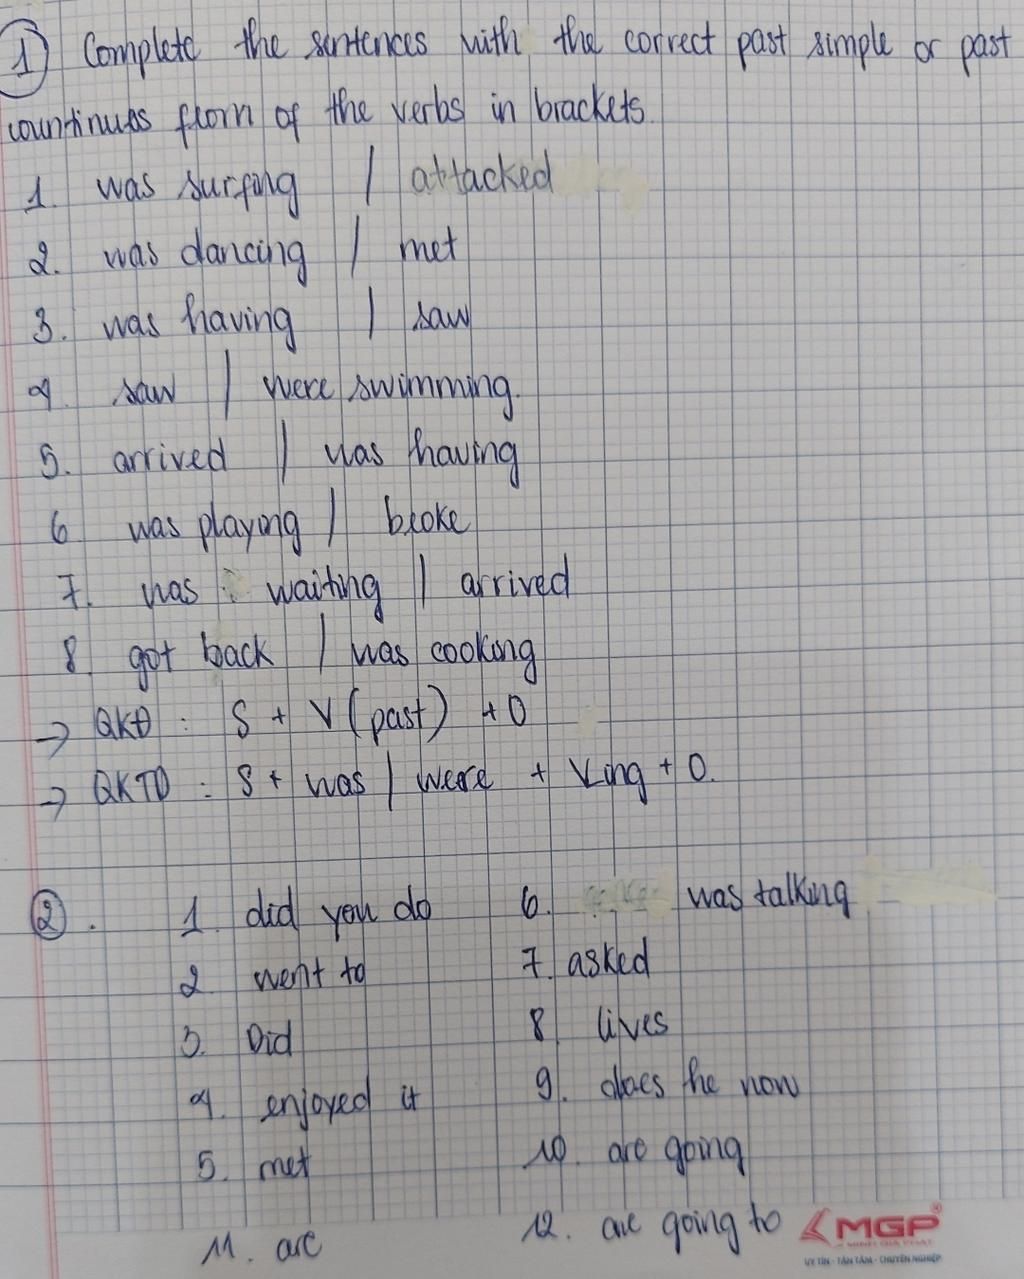 1 Complete the sentences with the correct past simple or past
countinues from of the verbs in brackets.
1. was surfing / attacked
2. was dancing / met
3. was having / saw
4. saw / were swimming.
5. arrived / was having
6 was playing / broke
7. was waiting / arrived
8. got back / was cooking
→ QKĐ : S + V (past) + O
→ QKTD : S + was / were + Ving + O.
2. 1. did you do 6. was talking
2 went to 7. asked
3. Did 8 lives
4. enjoyed it 9. does he now
5. met 10. are going
11. are 12. are going to
MGP
UY TÍN - TẬN TÂM - CHUYÊN NGHIỆP